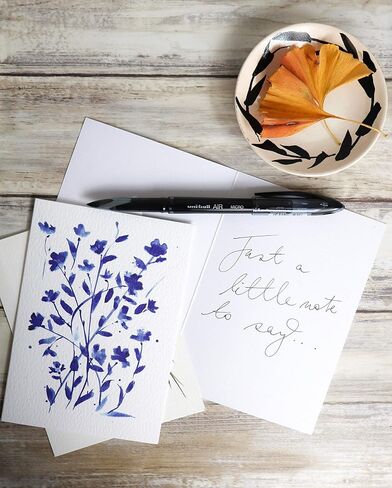 uni-ball AIR MICRO
Just a
little note
to say...